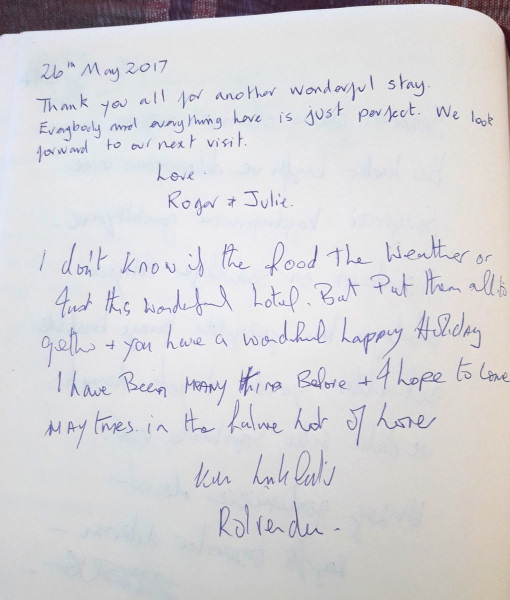 26th May 2017
Thank you all for another wonderful stay.
Everybody and everything here is just perfect. We look
forward to our next visit.
Love.
Roger + Julie.
I don't know if the food the weather or
Just this wonderful hotel. But Put them all to
gether + you have a wonderful happy Holiday
I have Been MANY times Before + I hope to come
MAY times in the future Lot of love
Ken
Rolvenden.